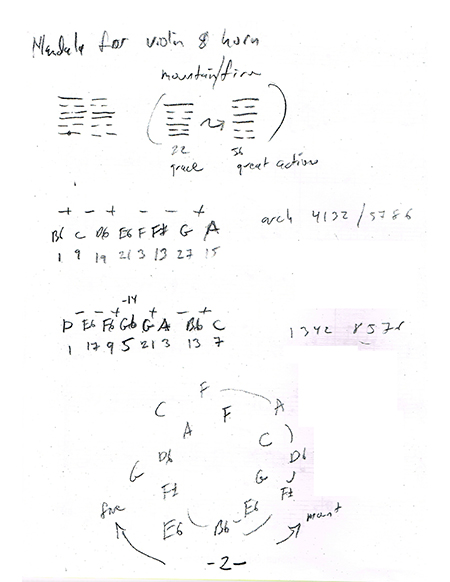 Mandala for violin & horn
mountain/fire
22 56
grace great action
+ - + + - - - +
Bb C Db Eb F F# G A
1 9 19 21 3 13 27 15
arch 4132 / 5786
-14
- - + + - - +
D Eb Fb Gb G A Bb C
1 17 9 5 21 3 13 7
1342 857
F
C F A
A C
Db Db
G G
F# F#
fire Eb Bb Eb mount
-2-